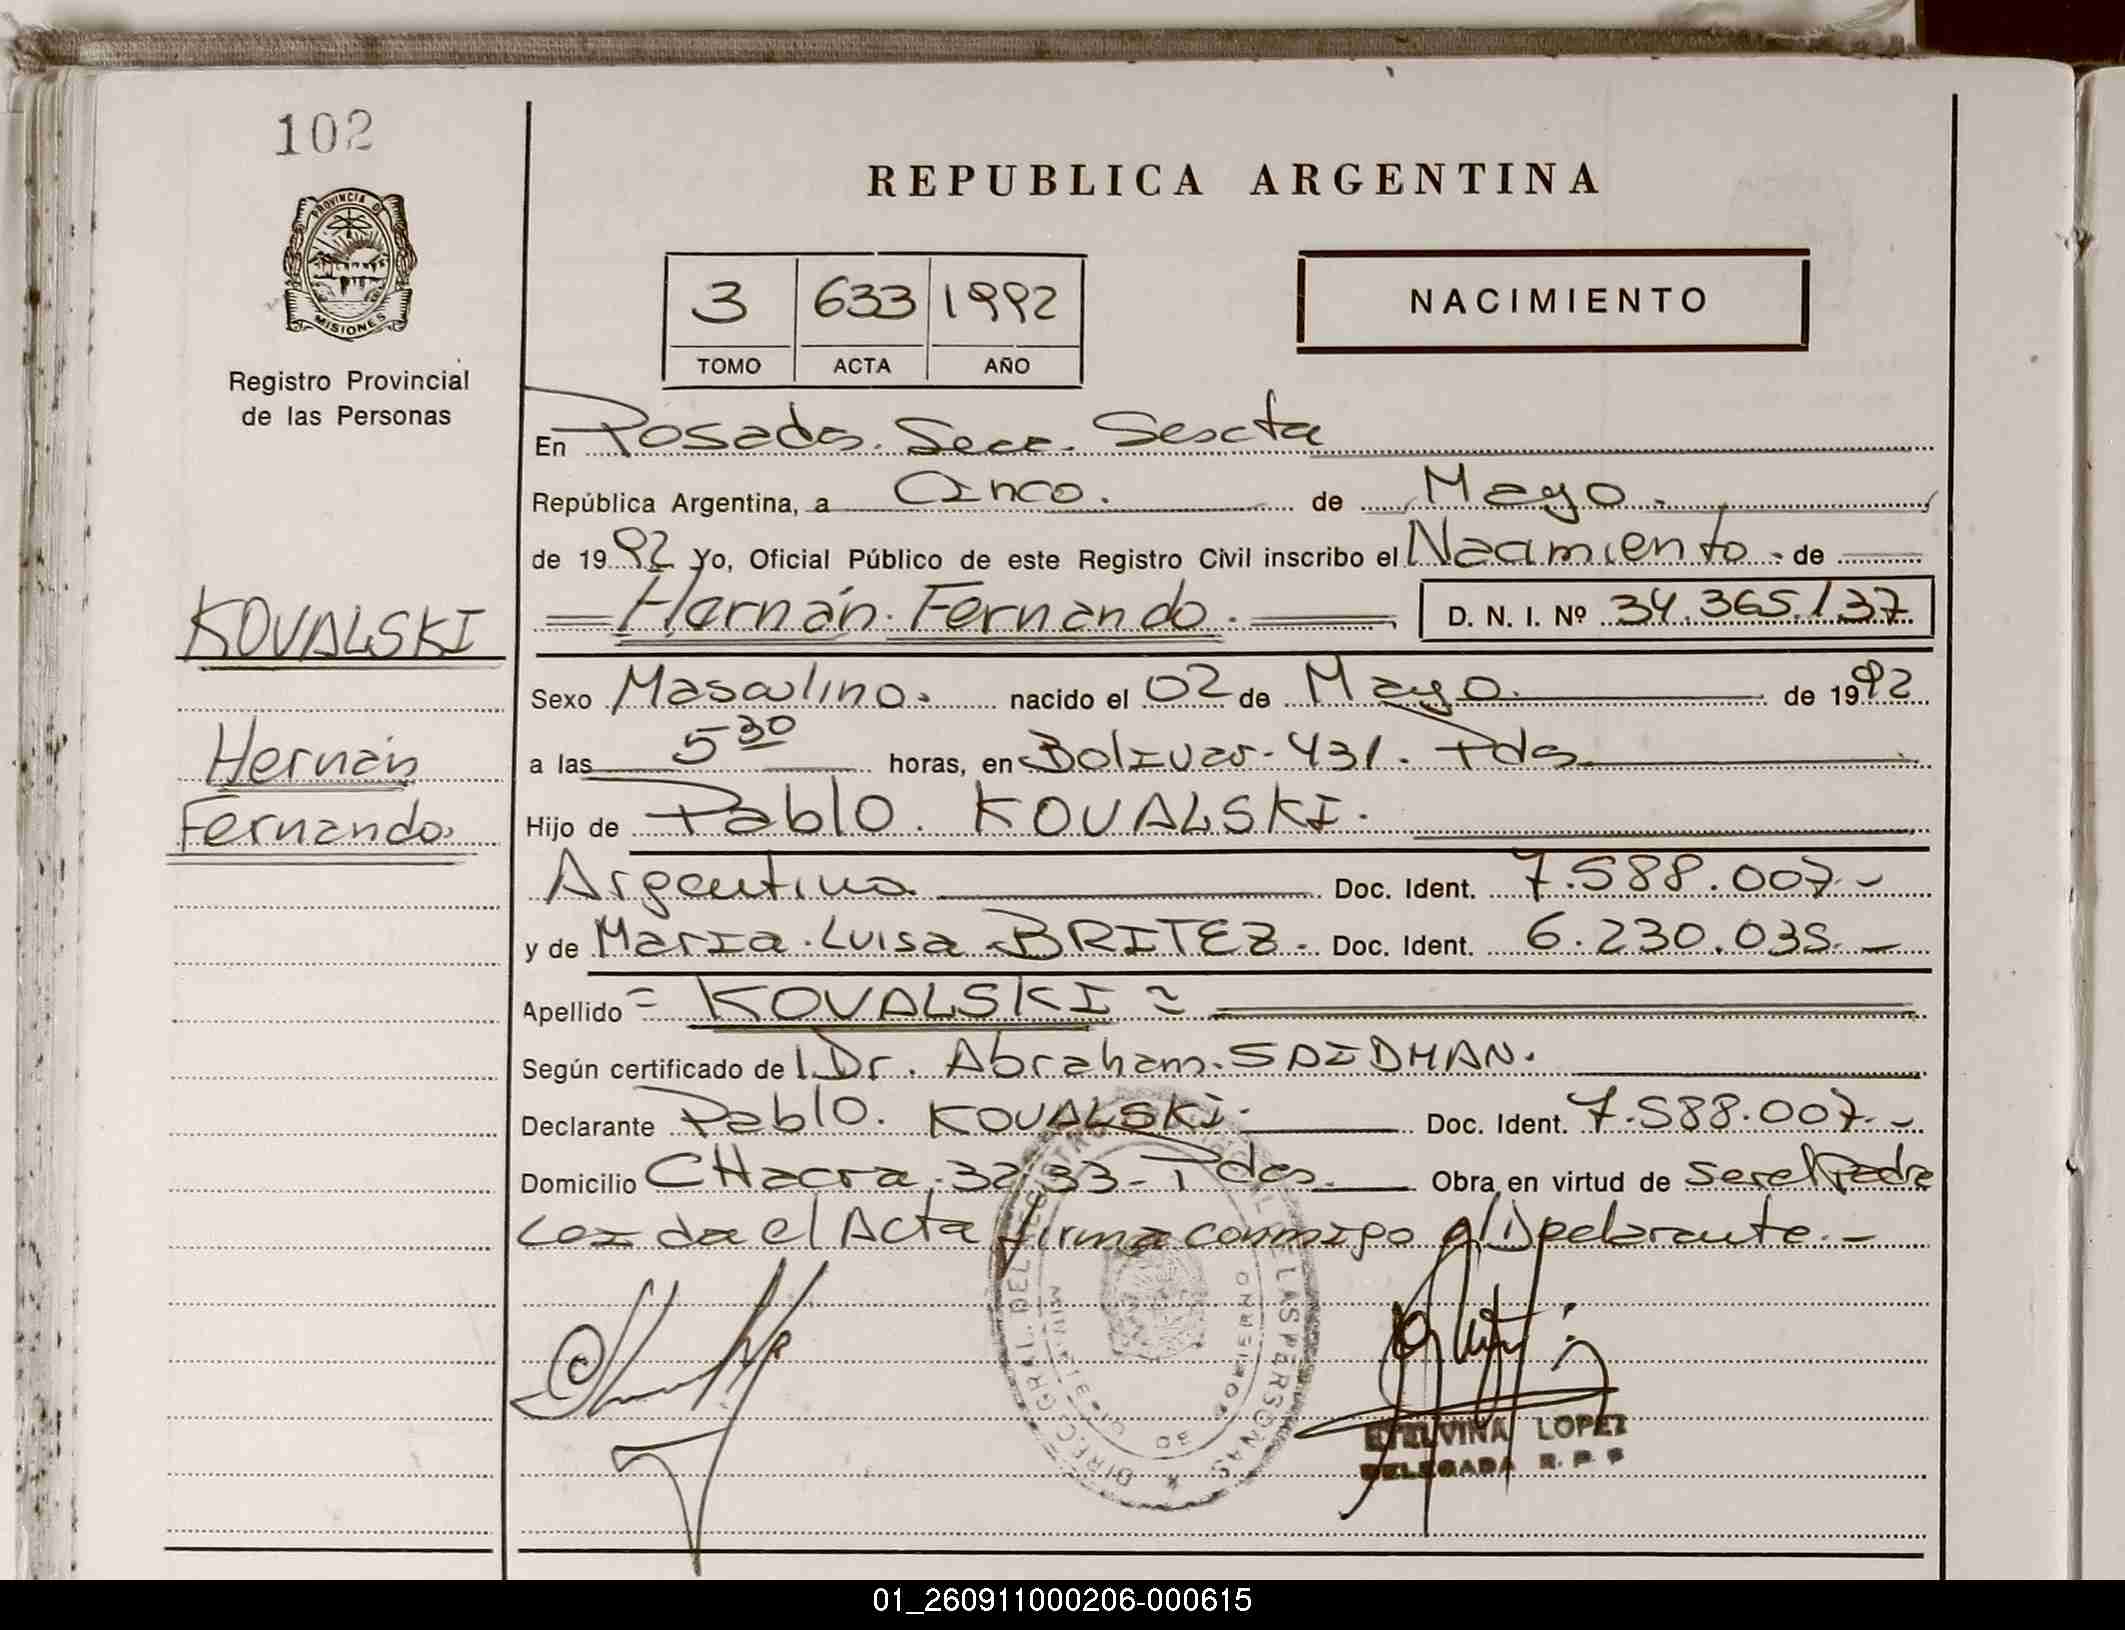 102
PROVINCIA DE
MISIONES
Registro Provincial
de las Personas
REPUBLICA ARGENTINA
3 633 1992
TOMO ACTA AÑO
NACIMIENTO
En Posadas. Secc. Sescta
República Argentina, a Cinco. de Mayo.
de 1992 Yo, Oficial Público de este Registro Civil inscribo el Nacimiento - de
Hernán Fernando. D. N. I. Nº 34.365.137
KOVALSKI
Hernán
Fernando.
Sexo Masculino. nacido el 02 de Mayo. de 1992
a las 5 30 horas, en Bolivar - 431. Pdas
Hijo de Pablo. KOVALSKI.
Argentina Doc. Ident. 7.588.007.-
y de Maria. Luisa BRITEZ - Doc. Ident. 6.230.035.-
Apellido = KOVALSKI =
Según certificado de Dr. Abraham. SAIDMAN.
Declarante Pablo. KOVALSKI. Doc. Ident. 7.588.007.-
Domicilio CHacra. 32 33 - Pdas. Obra en virtud de ser el Padre
Leida el Acta firma conmigo el Declarante. -
DIREC. GRAL. DEL REGISTRO DE LAS PERSONAS
DE GOBIERNO
ETELVINA LOPEZ
DELEGADA R. P. P
01_260911000206-000615